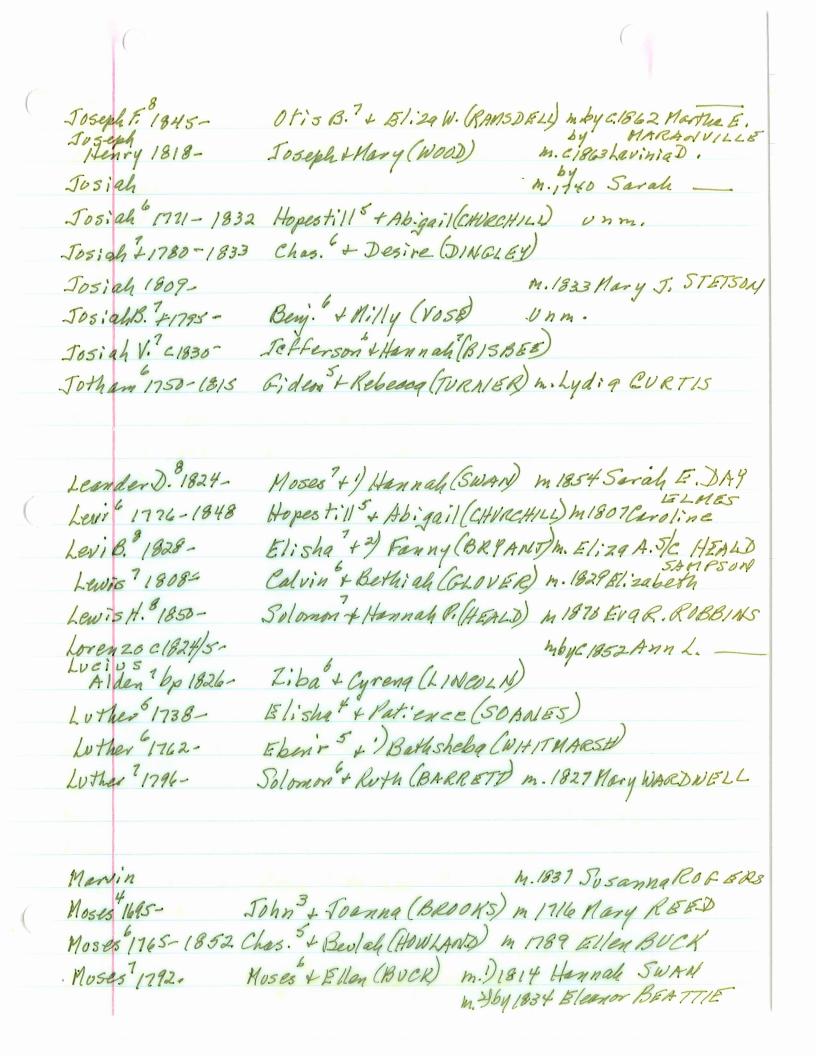 Joseph F.⁸ 1845- Otis B.⁷ + Eliza W. (RAMSDELL) m by c.1862 Martha E. ——
Joseph Henry 1818- Joseph + Mary (WOOD) m. by c1863 Lavinia D. MARANVILLE
Josiah m. by 1740 Sarah ——
Josiah⁶ 1771-1832 Hopestill⁵ + Abigail (CHURCHILL) unm.
Josiah⁷ + 1780-1833 Chas.⁶ + Desire (DINGLEY)
Josiah 1809- m. 1833 Mary J. STETSON
Josiah B.⁷ + 1795- Benj.⁶ + Milly (VOSE) unm.
Josiah V.⁷ c1830- Jefferson⁶ + Hannah⁷ (BISBEE)
Jotham⁶ 1750-1815 Gideon⁵ + Rebecca (TURNER) m. Lydia CURTIS
Leander D.⁸ 1824- Moses⁷ + 1) Hannah (SWAN) m 1854 Sarah E. DAY
Levi⁶ 1776-1848 Hopestill⁵ + Abigail (CHURCHILL) m 1807 Caroline ELMES
Levi B.⁸ 1828- Elisha⁷ + 2) Fanny (BRYANT) m. Eliza A. S/C HEALD
Lewis⁷ 1808- Calvin⁶ + Bethiah (GLOVER) m. 1829 Elizabeth SAMPSON
Lewis H.⁸ 1850- Solomon⁷ + Hannah P. (HEALD) m 1876 Eva R. ROBBINS
Lorenzo c1824/5- m by c 1852 Ann L. ——
Lucius Alden⁷ bp 1826- Ziba⁶ + Cyrena (LINCOLN)
Luther⁵ 1738- Elisha⁴ + Patience (SOANES)
Luther⁶ 1762- Eben'r⁵ + 1) Bathsheba (WHITMARSH)
Luther⁷ 1796- Solomon⁶ + Ruth (BARRETT) m. 1827 Mary WARDWELL
Marvin m. 1837 Susanna ROGERS
Moses⁴ 1695- John³ + Joanna (BROOKS) m 1716 Mary REED
Moses⁶ 1765-1852 Chas.⁵ + Beulah (HOWLAND) m 1789 Ellen BUCK
Moses⁷ 1792. Moses⁶ + Ellen (BUCK) m. 1) 1814 Hannah SWAN
m. 2) by 1834 Eleanor BEATTIE